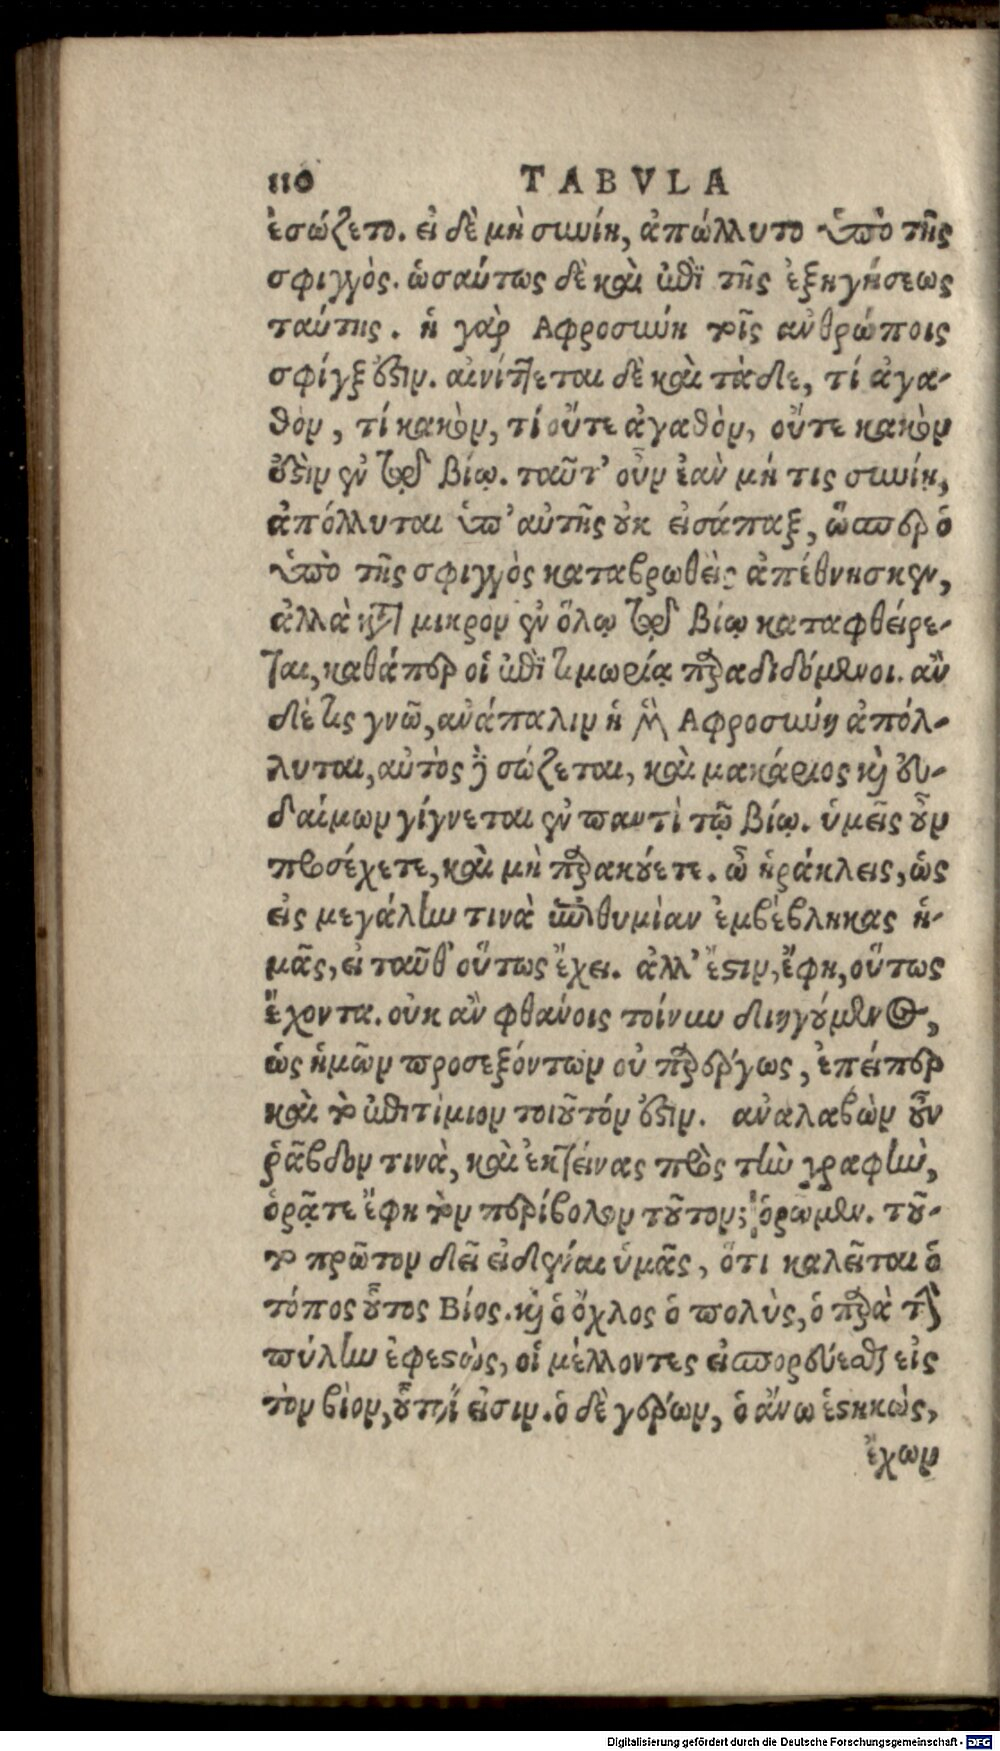 110 TABVLA
ἐσώζετο. εἰ δὲ μὴ συνίη, ἀπώλλυτο ὑπὸ τῆς
σφιγγὸς. ὡσαύτως δὲ καὶ ἐπὶ τῆς ἐξηγήσεως
ταύτης. ἡ γὰρ Αφροσύνη τοῖς ἀνθρώποις
σφίγξ ἐστιν. αἰνίτεται δὲ καὶ τὰδε, τί ἀγα-
θὸν, τί κακὸν, τί οὔτε ἀγαθὸν, οὔτε κακὸν
ἐστὶν ἐν τῷ βίῳ. ταῦτ' οὖν ἐὰν μή τις συνίη,
ἀπόλλυται ὑπ' αὐτῆς οὐκ εἰσάπαξ, ὥσπερ ὁ
ὑπὸ τῆς σφιγγὸς καταβρωθεὶς ἀπέθνησκεν,
ἀλλὰ κατὰ μικρον ἐν ὅλῳ τῷ βίῳ καταφθείρε-
ται, καθάπερ οἱ ἐπὶ τιμωρίᾳ παραδιδόμενοι. ἂν
δέ τις γνῶ, ἀνάπαλιν ἡ μὲν Αφροσύνη ἀπόλ-
λυται, αὐτὸς δὲ σώζεται, καὶ μακάριος καὶ εὐ-
δαίμων γίγνεται ἐν παντὶ τῷ βίῳ. ὑμεῖς οὖν
προσέχετε, καὶ μὴ παρακούετε. ὦ ἡράκλεις, ὡς
εἰς μεγάλην τινὰ ἐπιθυμίαν ἐμβέβληκας ἡ-
μᾶς, εἰ ταῦθ' οὕτως ἔχει. ἀλλ' ἔστιν, ἔφη, οὕτως
ἔχοντα. οὐκ ἂν φθάνοις τοίνυν διηγούμενος,
ὡς ἡμῶν προσεξόντων οὐ παρέργως, ἐπείπερ
καὶ τὸ ἐπιτίμιον τοιοῦτόν ἐστιν. ἀναλαβὼν οὖν
ῥάβδον τινὰ, καὶ ἐκτείνας πρὸς τὴν γραφὴν,
ὁρᾶτε ἔφη τὸν περίβολον τοῦτον; ὁρῶμεν. τοῦ-
το πρῶτον δεῖ εἰδέναι ὑμᾶς, ὅτι καλεῖται ὁ
τόπος οὗτος Βίος. καὶ ὁ ὄχλος ὁ πολὺς, ὁ παρὰ τὴν
πύλην ἐφεστὼς, οἱ μέλλοντες εἰσπορεύεσθαι εἰς
τὸν βίον, οὗτοί εἰσιν. ὁ δὲ γέρων, ὁ ἄνω ἑστηκὼς,
ἔχων
Digitalisierung gefördert durch die Deutsche Forschungsgemeinschaft - DFG